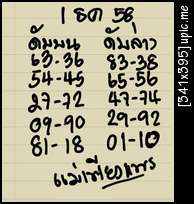 1 ธค 58
ดับบน ดับล่าง
63-36 83-38
54-45 65-56
27-72 47-74
09-90 29-92
81-18 01-10
[341x395] upic.me